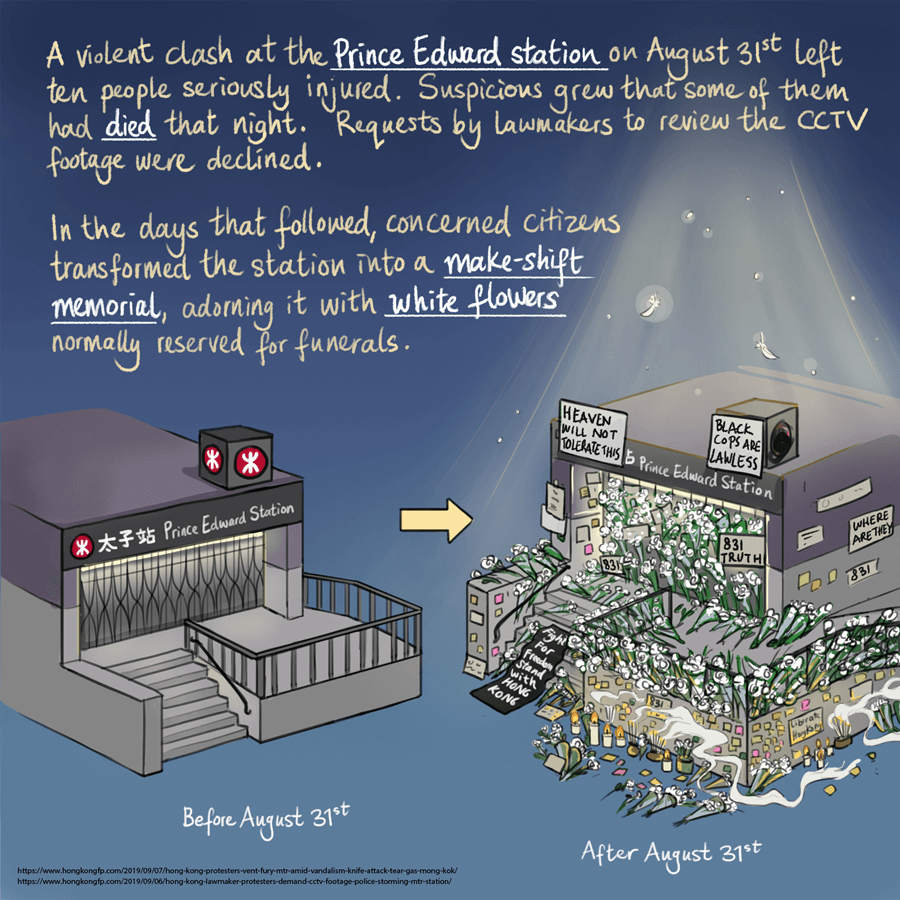 A violent clash at the Prince Edward station on August 31st left
ten people seriously injured. Suspicious grew that some of them
had died that night. Requests by lawmakers to review the CCTV
footage were declined.
In the days that followed, concerned citizens
transformed the station into a make-shift
memorial, adorning it with white flowers
normally reserved for funerals.
太子站 Prince Edward Station
Before August 31st
HEAVEN
WILL NOT
TOLERATE THIS
BLACK
COPS ARE
LAWLESS
Prince Edward Station
831
TRUTH!
831
WHERE
ARE THEY
831
Fight
For
Freedom
Stand
with
HONG
KONG
Liberate
Hong Kong
After August 31st
https://www.hongkongfp.com/2019/09/07/hong-kong-protesters-vent-fury-mtr-amid-vandalism-knife-attack-tear-gas-mong-kok/
https://www.hongkongfp.com/2019/09/06/hong-kong-lawmaker-protesters-demand-cctv-footage-police-storming-mtr-station/